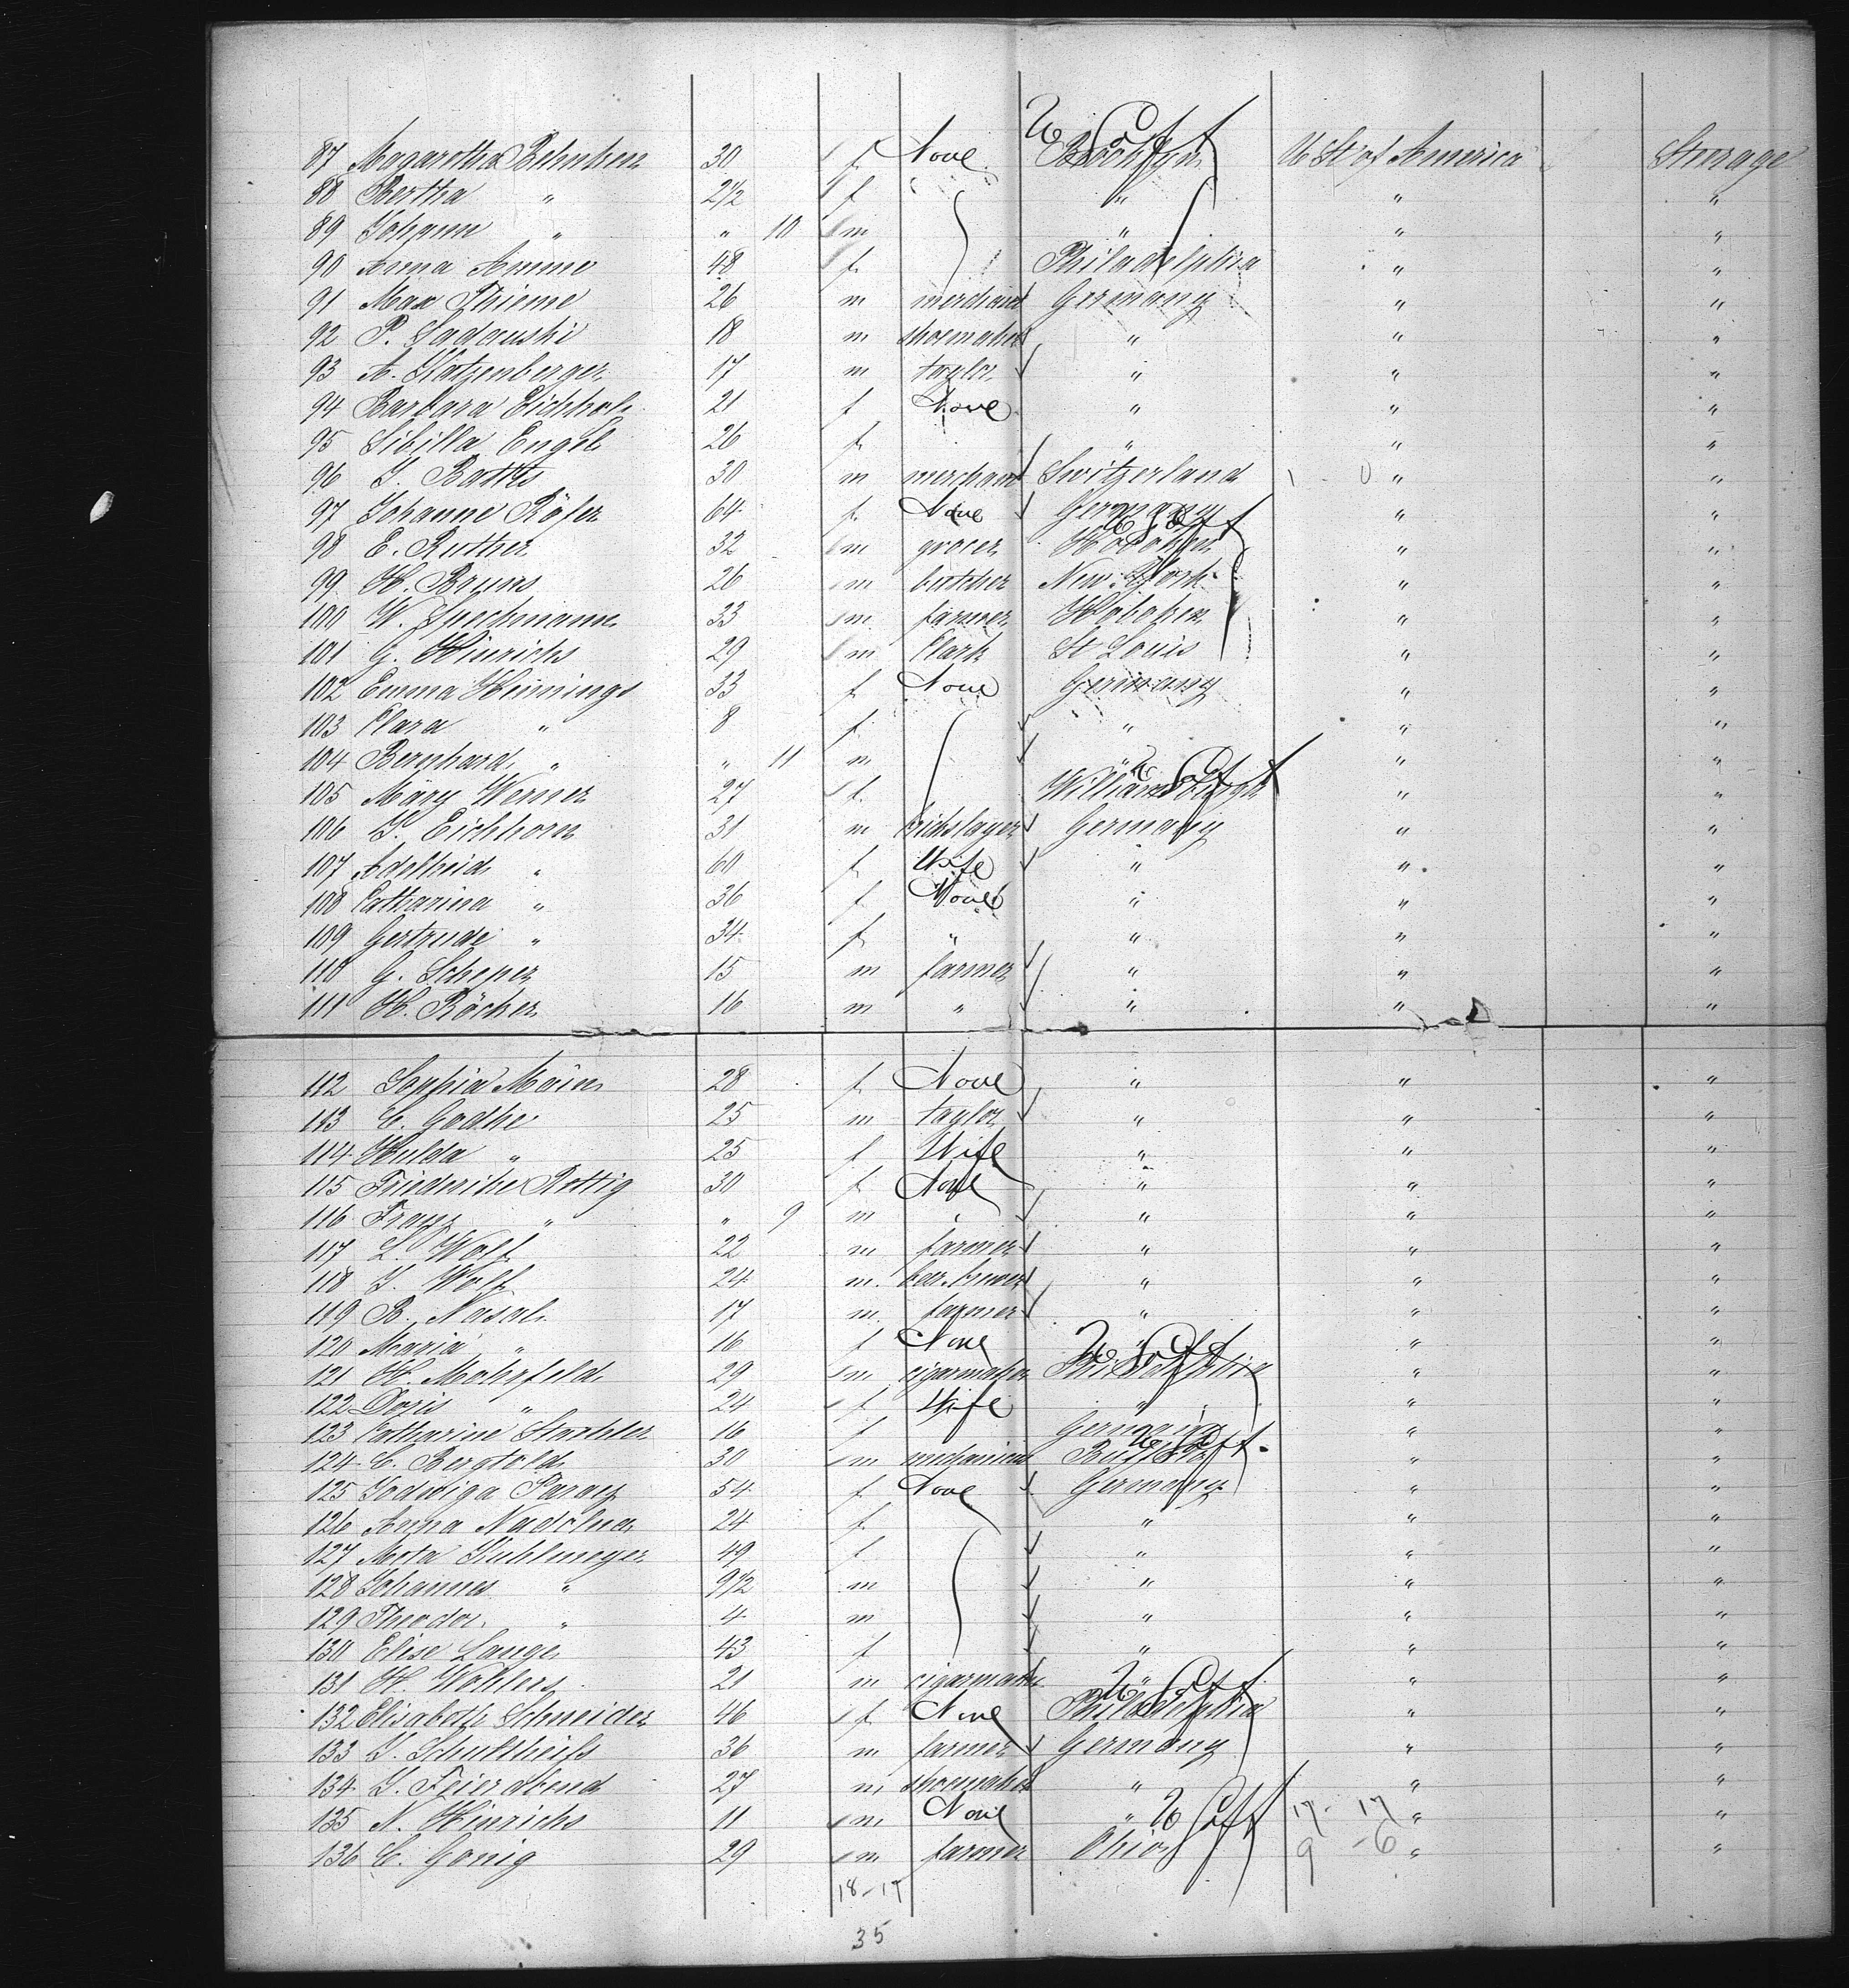 U S of A
87 Magarotha Behnken 30 f None Brooklyn U St of America Steerage
88 Bertha " 2 1/2 f " " "
89 Johann " " 10 m " " "
90 Anna Amme 48 f Philadelphia " "
91 Max Thieme 26 m merchant Germany " "
92 P. Sadauski 18 m shoemaker " " "
93 A. Klotzenberger 17 m taylor " " "
94 Barbara Eichhol 21 f None " " "
95 Sibilla Engel 26 f " " "
96 J. Batts 30 m merchant Switzerland " "
97 Johanne Röfer 64 f None Germany " "
98 E. Ruther 32 m grocer Hoboken " "
99 H. Bruns 26 m butcher New York " "
100 W. Speckmann 33 m farmer Hoboken " "
101 G. Hinrichs 29 m Clark St Louis " "
102 Emma Hennings 33 f None Germany " "
103 Clara " 8 f " " "
104 Bernhard " " 11 m " " "
105 Mary Werner 27 f Williamsburgh " "
106 J. Eichhorn 31 m brickslayer Germany " "
107 Adelheid " 60 f Wife " " "
108 Catharina " 36 f None " " "
109 Gertrude " 34 f " " " "
110 G. Scheper 15 m farmer " " "
111 H. Röcker 16 m " " " "
112 Sophia Main 28 f None " " "
113 C. Godthe 25 m taylor " " "
114 Hulda " 25 f Wife " " "
115 Friederike Rottig 30 f None " " "
116 Franz " " 9 m " " "
117 L. Wolf 22 m farmer " " "
118 J. Wolf 24 m beer brewer " " "
119 B. Nasal 17 m farmer " " "
120 Maria " 16 f None " " "
121 H. Mohrfeld 29 m cigarmaker Philadelphia " "
122 Doris " 24 f Wife " " "
123 Catharine Stachler 16 f Germany " "
124 C. Bergtold 30 m mechanic Buffalo " "
125 Godwiga Paray 54 f None Germany " "
126 Anna Nadolna 24 f " " "
127 Meta Kuhlmeyer 49 f " " "
128 Johannes " 9 1/2 m " " "
129 Theodor " 4 m " " "
130 Elise Lange 43 f " " "
131 H. Wohlers 21 m cigarmaker " " "
132 Elisabeth Schneider 46 f None Philadelphia " "
133 J. Schultheifs 36 m farmer Germany " "
134 J. Feierabend 27 m shoemaker " " "
135 N. Hinrichs 11 m None " 17 - 17 " "
136 C. Gonig 29 m farmer Ohio 9 - 6 " "
18-17
35